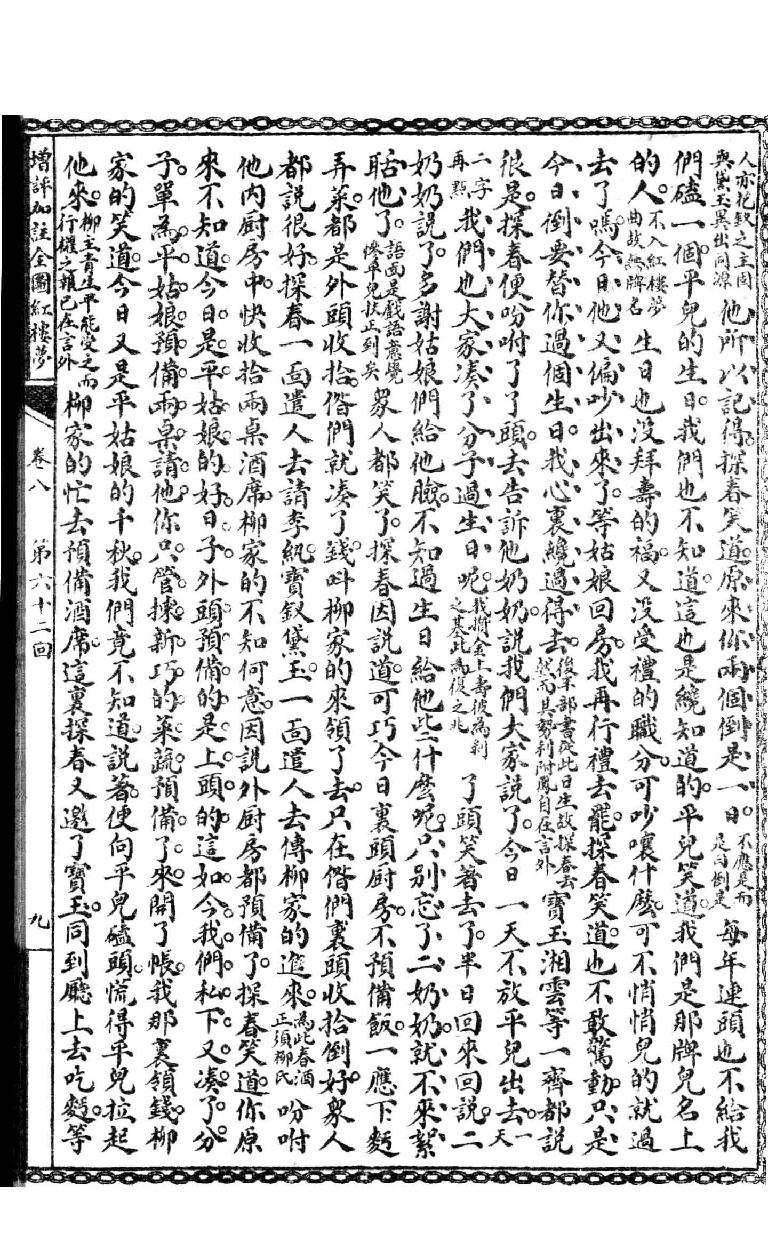 人亦花釵之主固與黛玉異出同源他所以記得探春笑道原來你兩個倒是一日不應是而是曰倒是每年連頭也不給我
們磕一個平兒的生日我們也不知道這也是纔知道的平兒笑道我們是那牌兒名上
的人不入紅樓夢曲故無牌名生日也沒拜壽的福又沒受禮的職分可吵嚷什麼可不悄悄兒的就過
去了嗎今日他又偏吵出來了等姑娘回房我再行禮去罷探春笑道也不敢驚動只是
今日倒要替你過個生日我心裏纔過得去後半部書從此日生故探春云然而其勢利附鳳自在言外寶玉湘雲等一齊都說
很是探春便吩咐了丫頭去告訴他奶奶說我們大家說了今日一天不放平兒出去一天
二字再點我們也大家湊了分子過生日呢之基此為復之兆丫頭笑著去了半日回來回說二
奶奶說了多謝姑娘們給他臉不知過生日給他些什麼呢只別忘了二奶奶就不來絮
聒他了語面是戲語意覺慘平兒扶正到矣眾人都笑了探春因說道可巧今日裏頭厨房不預備飯一應下麵
弄菜都是外頭收拾偺們就湊了錢叫柳家的來領了去只在偺們裏頭收拾倒好眾人
都說很好探春一面遣人去請李紈寶釵黛玉一面遣人去傳柳家的進來為此春酒正須柳氏吩咐
他內厨房中快收拾兩桌酒席柳家的不知何意因說外厨房都預備了探春笑道你原
來不知道今日是平姑娘的好日子外頭預備的是上頭的這如今我們私下又湊了分
子單為平姑娘預備兩桌請他你只管揀新巧的菜蔬預備了來開了帳我那裏領錢柳
家的笑道今日又是平姑娘的千秋我們竟不知道說著便向平兒磕頭慌得平兒拉起
他來柳主青生平能受之而行權之賴已在言外柳家的忙去預備酒席這裏探春又邀了寶玉同到廳上去吃麵等
增評加註全圖紅樓夢 卷八 第六十二回 九